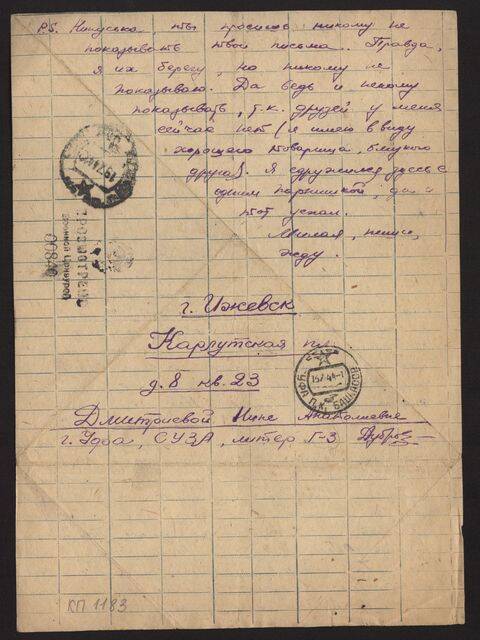 P.S. Нинуська, ты просишь никому не
показывать твои письма.. Правда,
я их берегу, но никому не
показываю. Да ведь и некому
показывать, т.к. друзей у меня
сейчас нет (я имею в виду
хорошего товарища, близкого
друга). Я сдружился здесь с
одним парнишкой, да и
тот уехал.
Милая, пиши,
жду.
ПРОСМОТРЕНО
Военной Цензурой
00840
г. Ижевск
пл.
д. 8 кв. 23
УФА
15.7.44
П.К. БАШ.АССР
Дмитриевой Нине Анатолиевне
г. Уфа, СУЗА, литер Г-3
КП 1183